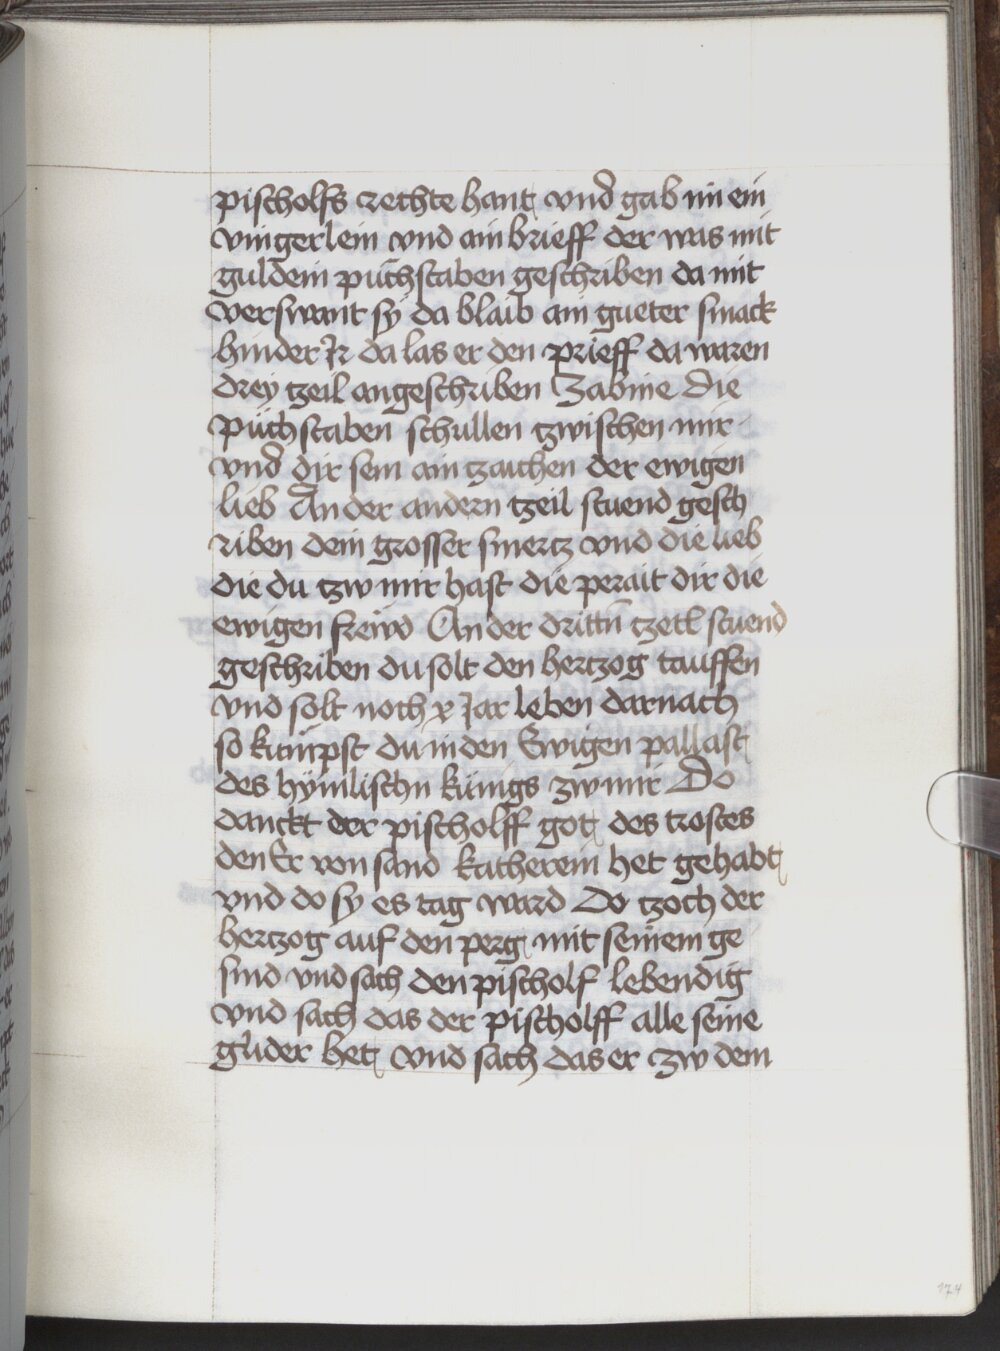 pischolfs rechte hant und gab im ein
vingerlein vnd ain brieff der was mit
guldein puchstaben geschriben da mit
verswant sÿ da blaib ain gueter smack
hinder Jr da las er den prieff da waren
dreÿ tzeil angeschriben Zabine Die
puchstaben schullen tzwischen mir
vnd dir sein ain tzaichen der ewigen
lieb An der andern tzeil stuend gesch
riben dein grosser smertz vnd die lieb
die du tzw mir hast die perait dir die
ewigen freẅd An der drittn̄ tzeil stuend
geschriben du solt den hertzog tauffen
vnd solt noch x Jar leben darnach
so kumpst du in den Ewigen pallast
des hÿmlischn künigs zw mir Do
danckt der pischolff got des trostes
den Er von sand katherein het gehabt
vnd do sÿ es tag ward Do tzoch der
hertzog auf den perg mit seinem ge
sind vnd sach den pischolf lebendig
vnd sach das der pischolff alle seine
glider het vnd sach das er zw dem
174